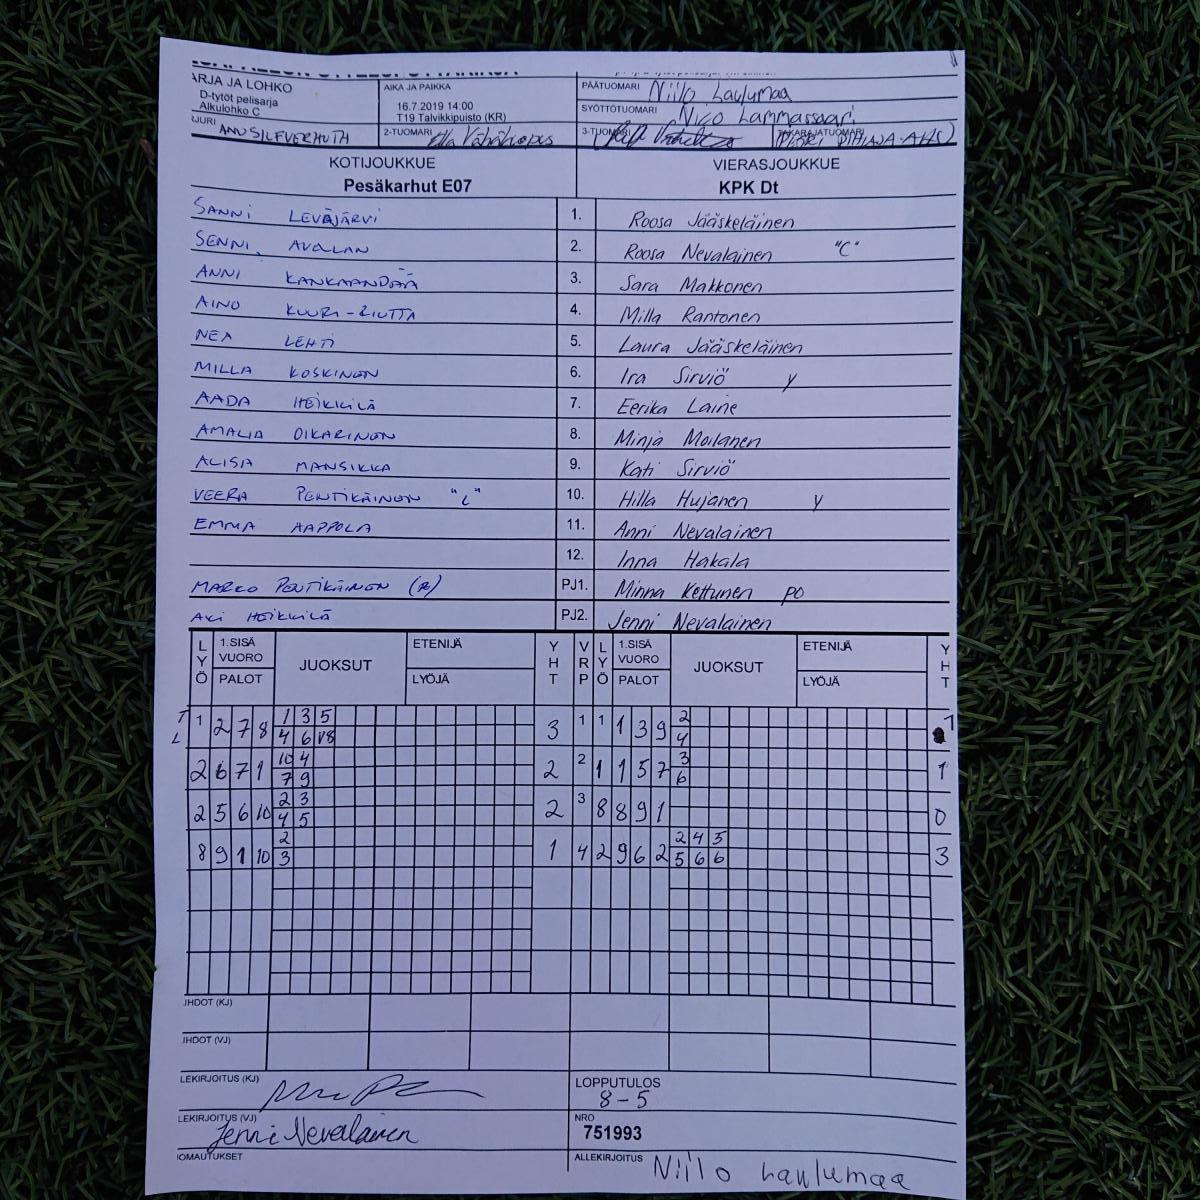 ARJA JA LOHKO
D-tytöt pelisarja
Alkulohko C
AIKA JA PAIKKA
16.7.2019 14:00
T19 Talvikkipuisto (KR)
PÄÄTUOMARI Niilo Laulumaa
SYÖTTÖTUOMARI Nico Lammassaari
URI
2-TUOMARI
3-TUOMARI
TAKARAJATUOMARI
KOTIJOUKKUE VIERASJOUKKUE
Pesäkarhut E07 KPK Dt
SANNI LEVÄJÄRVI 1. Roosa Jääskeläinen
SENNI AVELLAN 2. Roosa Nevalainen "C"
ANNI KANKAANPÄÄ 3. Sara Makkonen
AINO KUURI-RIUTTA 4. Milla Rantonen
NEA LEHTI 5. Laura Jääskeläinen
MILLA KOSKINEN 6. Ira Sirviö y
AADA HEIKKILÄ 7. Eerika Laine
AMALIA OIKARINEN 8. Minja Moilanen
ALISA MANSIKKA 9. Kati Sirviö
VEERA PENTIKÄINEN "C" 10. Hilla Hujanen y
EMMA AAPPOLA 11. Anni Nevalainen
12. Inna Hakala
MARKO PENTIKÄINEN PJ1. Minna Kettunen po
AKI HEIKKILÄ PJ2. Jenni Nevalainen
LYÖ 1.SISÄ VUORO PALOT JUOKSUT ETENIJÄ LYÖJÄ YHT VRP LYÖ 1.SISÄ VUORO PALOT JUOKSUT ETENIJÄ LYÖJÄ YHT
T 1 3 5 2
L 1 2 7 8 3 1 1 1 3 9 1
4 6 V8 4
10 4 3
2 6 7 1 2 2 1 1 5 7 1
7 9 6
2 3
2 5 6 10 2 3 8 8 9 1 0
4 5
2 2 4 5
8 9 1 10 1 4 2 9 6 2 3
3 5 6 6
IHDOT (KJ)
IHDOT (VJ)
LEKIRJOITUS (KJ)
LOPPUTULOS
8-5
LEKIRJOITUS (VJ) Jenni Nevalainen
NRO
751993
OMAUTUKSET
ALLEKIRJOITUS Niilo Laulumaa